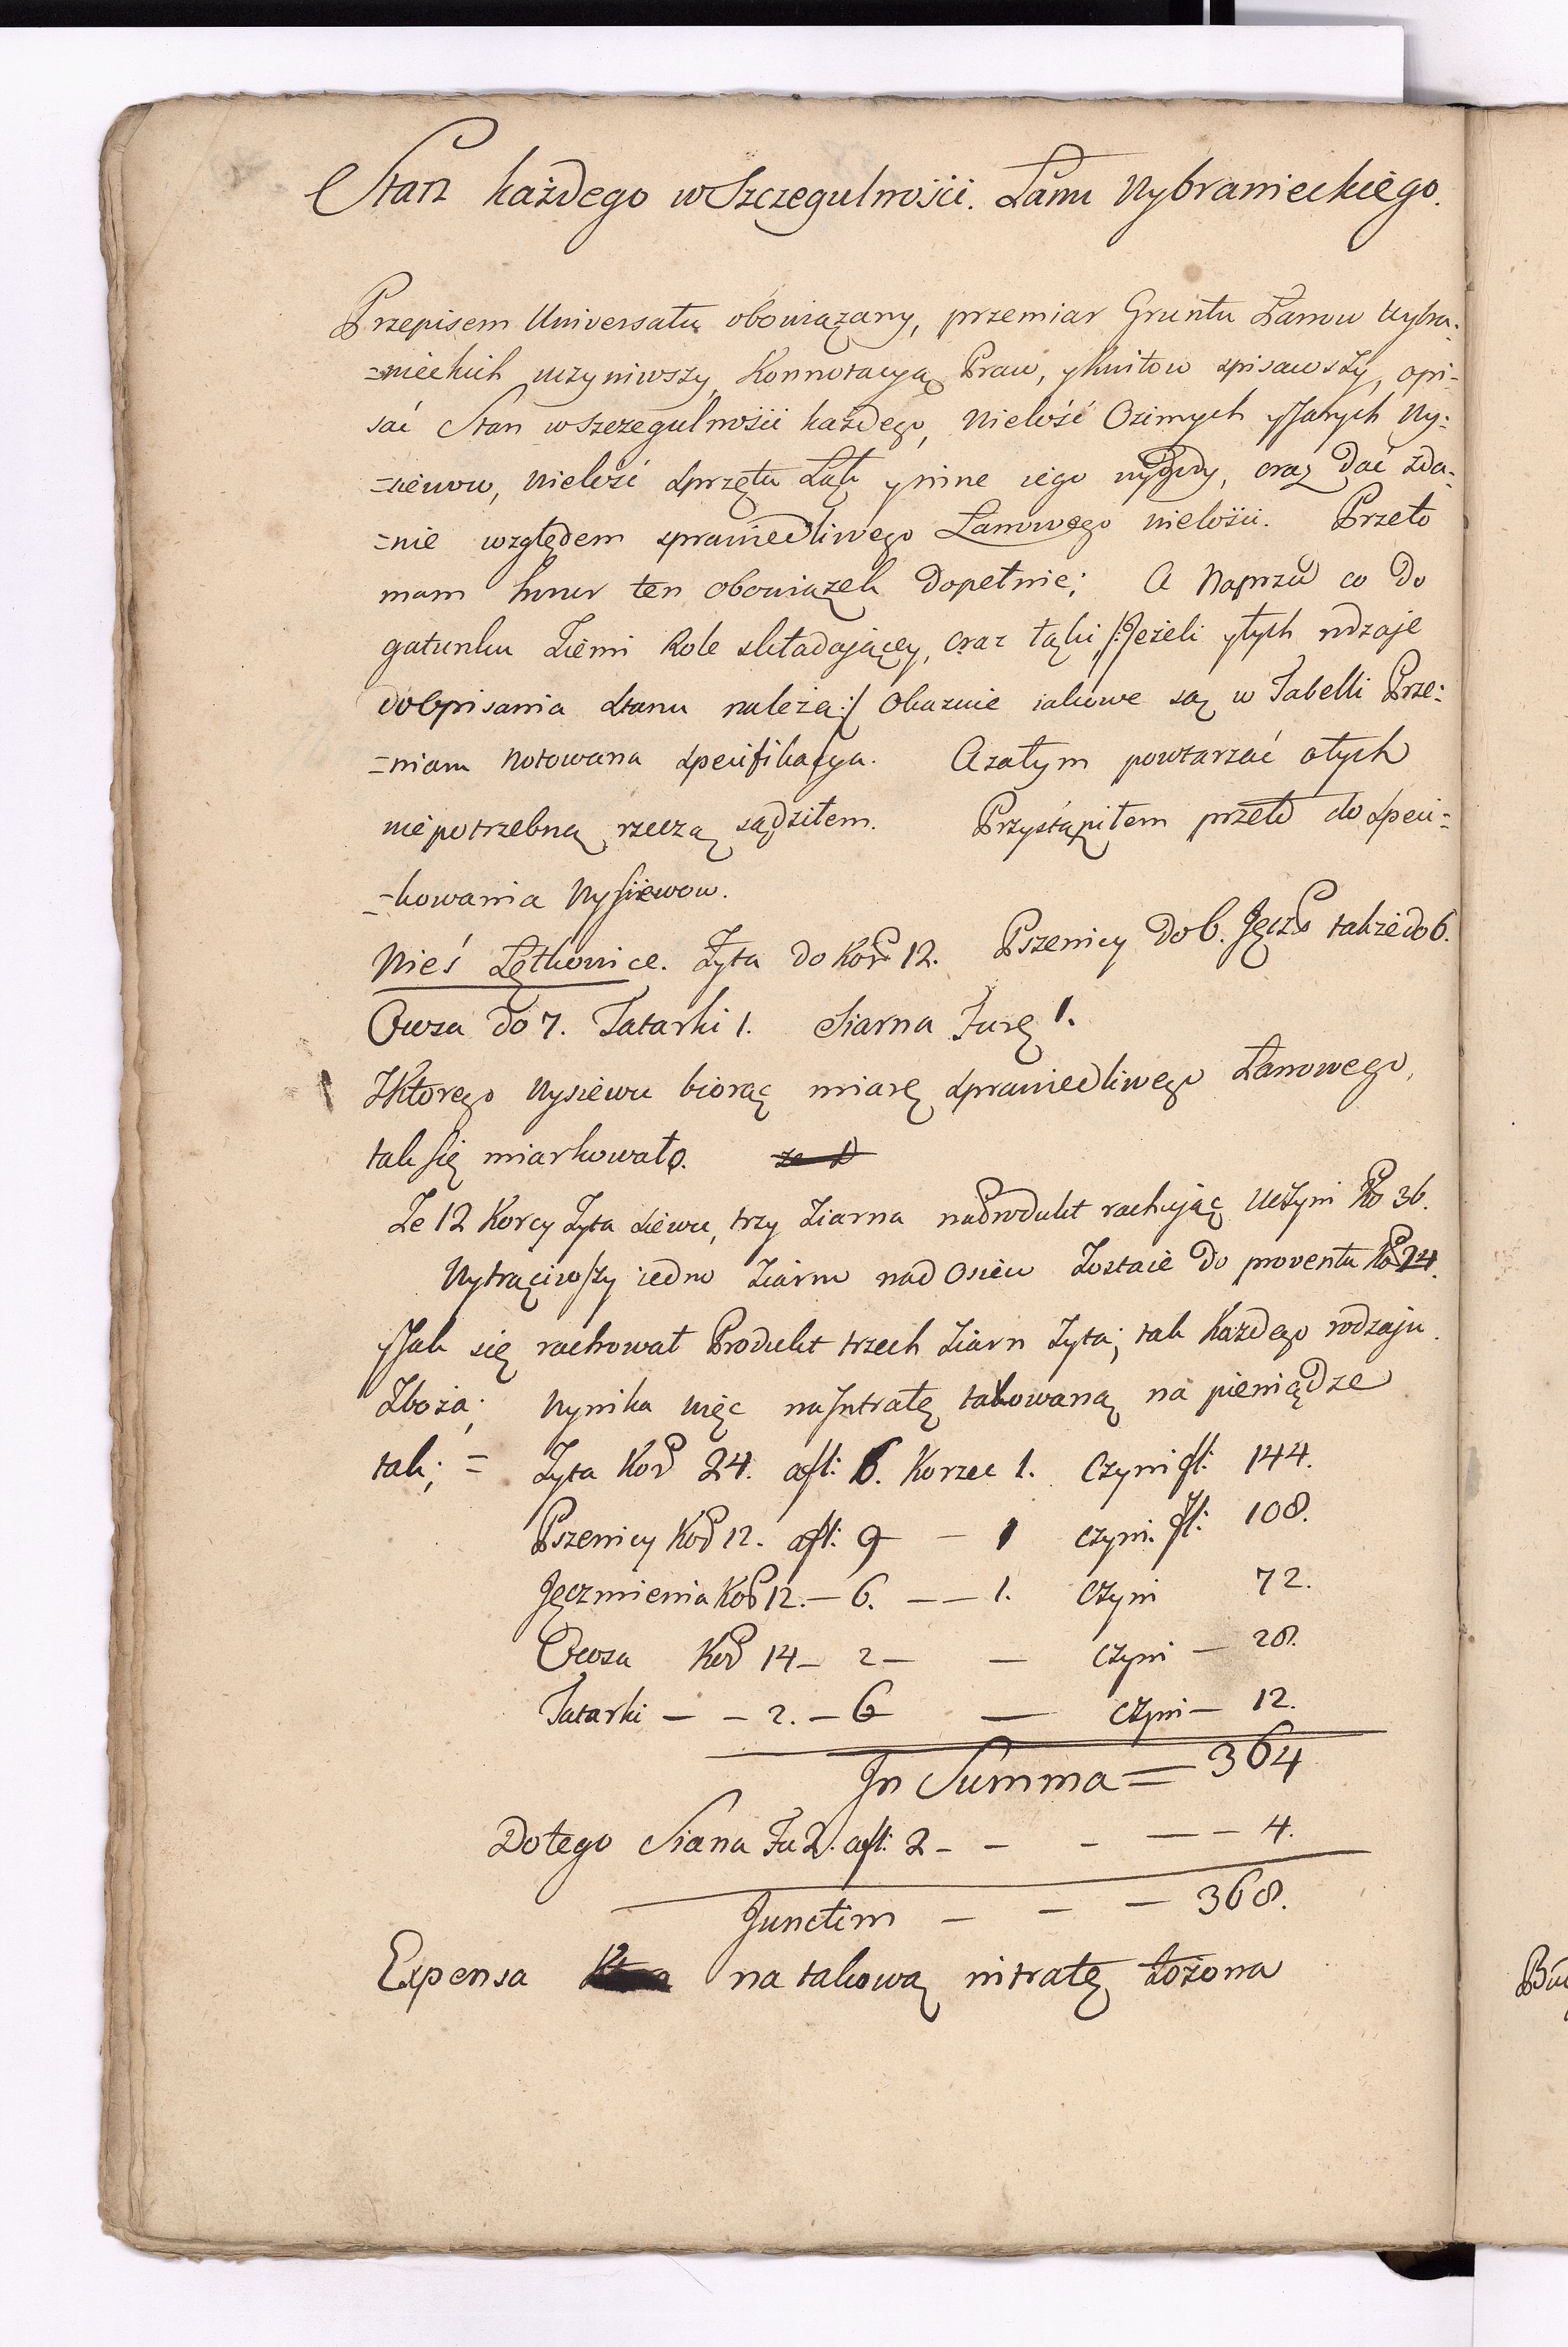 Stan każdego w Szczegulności. Łanu Wybranieckiego.
Przepisem Uniwersału obowiązany, przemiar Gruntu Łanow Wybra-
=nieckich uczyniwszy, Konnotacyą Praw, y kwitow spisawszy, opi-
sać Stan w szczegulności każdego, Wielość Ozimych y Jarych Wy-
=siewow, Wielość sprzętu Łąk y inne iego wygody, oraz Dać zda-
=nie względem sprawiedliwego Łanowego wielości. Przeto
mam honor ten obowiązek Dopełnić; A Naprzod co do
gatunku Ziemi Role składaiącey, oraz łąki, /:Jeżeli y tych rodzaje
do Opisania stanu należą:/ Okazuie iakowe są w Tabelli Prze-
=miaru Notowana specifikacya. A zatym powtarzać o tych
niepotrzebną rzeczą sądziłem. Przystąpiłem przeto do speci-
=kowania Wysiewow.
Wieś Łętkowice. Żyta do Kor 12. Pszenicy Do 6. Jęcz także do 6.
Owsa do 7. Tatarki 1. Siarna Furę 1.
Z Ktorego Wysiewu biorąc miarę sprawiedliwego Łanowego,
tak się miarkowało.
Ze 12 Korcy Żyta siewu, trzy Ziarna na Produkt rachując Uczyni Ko 36.
Wytrąciwszy iedno Ziarno nad Osiew Zostaie Do proventu Ko 24.
y Jak się rachował Produkt trzech Ziarn Żyta; tak Każdego rodzaju
Zboża; Wynika więc na Intratę takowaną na pieniądze
tak; = Żyta Kor 24. a fl: 6. Korzec 1. Czyni fl: 144.
Pszenicy Kor 12. a fl: 9 — 1 czyni. fl: 108.
Jęczmienia Kor 12. — 6. — — 1. Czyni 72.
Owsa Kor 14 — 2 — — czyni — 28.
Tatarki — — 2. — 6 — czyni — 12.
In Summa = 364
Do tego Siana Fu 2. a fl: 2 — — — — — 4.
Junctim — — — 368.
Expensa na takową intratę Łożona